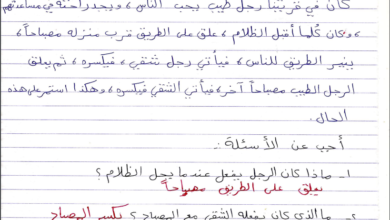 كان في قريتنا رجل طيب يحب الناس ، ويجد راحته في مساعدتهم
، وكان كُلما أقبل الظلام ، علق على الطريق قرب منزله مصباحاً ،
ينير الطريق للناس ، فيأتي رجل شقي ، فيكسره ، ثم يعلق
الرجل الطيب مصباحاً آخر ، فيأتي الشقي فيكسره ، وهكذا استمر على هذه
الحال .
أجب عن الأسئلة :
١- ماذا كان الرجل يفعل عندما يحل الظلام ؟
يعلق على الطريق مصباحاً
٢- ما الذي كان يفعله الشقي مع المصباح ؟ يكسر المصباح